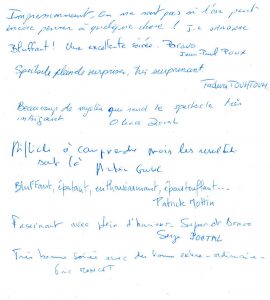 Impressionnant, On ne sait pas si l'on peut
encore penser à quelque chose !
Bluffant ! Une excellente soirée. Bravo
Jean Paul Roux
Spectacle plein de surprises, très surprenant
Beaucoup de mystère qui rend le spectacle très
intrigant
Difficile à comprendre mais les résultats
sont là
Bluffant, épatant, enthousiasmant, époustouflant...
Patrick Mottin
Fascinant avec plein d'humour Super et Bravo
Serge PORTAL
Très bonne soirée avec du bonus extra-ordinaire.